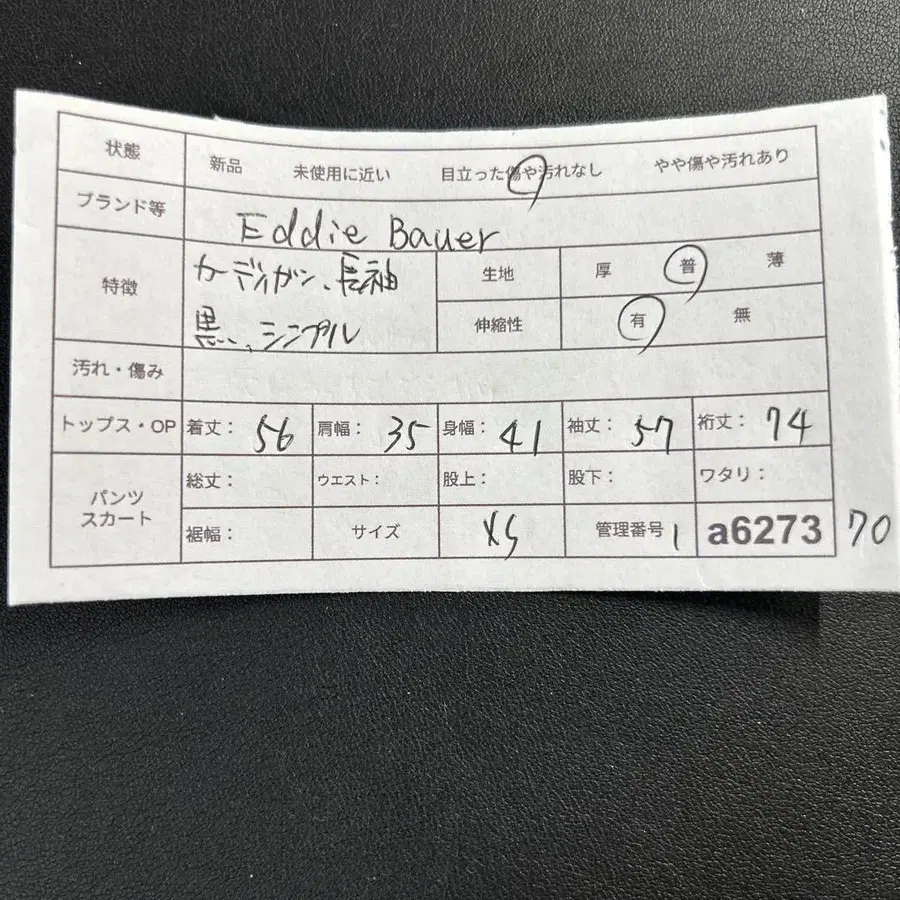 状態 新品 未使用に近い 目立った傷や汚れなし やや傷や汚れあり
ブランド等 Eddie Bauer
特徴 カーディガン、長袖 生地 厚 普 薄
黒、シンプル 伸縮性 有 無
汚れ・傷み
トップス・OP 着丈： 56 肩幅： 35 身幅： 41 袖丈： 57 裄丈： 74
パンツ スカート 総丈： ウエスト： 股上： 股下： ワタリ：
裾幅： サイズ XS 管理番号 1 a6273 70